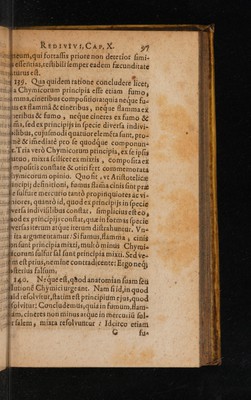 REDIVIVS, CAP. X. 97
neum, qui fortassis priore non deterior simi-
essentias, vestibili semper eadem fœcunditate
aturus est.
139. Qua quidem ratione concludere licet,
Chymicorum principia esse etiam fumo,
amma, cineribus compositiora: quia neque fu-
ex flamma & cineribus, neque flamma ex
neribus & fumo, neque cineres ex fumo &
ma, sed ex principijs in specie diversa indivi-
ibilibus, cujusmodi quatuor elemẽta sunt, pro-
mè & immediatè pro se quodque componun-
Tria verò Chymicorum principia, ex se ipsis
utuo, mixta scilicet ex mixtis, composita ex
mpositis constare & oriri fert commemorata
hymicorum opinio. Quo fit, vt Aristotelicæ
incipij definitioni, fumus flãma cinis sint præ
sulfure mercurio tantò propinquiores ac vi-
iniores, quantò id, quod ex principijs in specie
versa indivisilibus constat, simplicius est eò,
uod ex principijs constat, quæ in formas specie
versas iterum atque iterum distrahuntur. Vn-
ita argumentamur: Si fumus, flamma, cinis
n sunt principia mixti, multò minùs Chymi-
corum sulfur sal sunt principia mixti. Sed ve-
m est prius, nemine contradicente: Ergo neq;
osterius falsum.
140. Neque est, quod anatomian suam seu
lutionẽ Chymici urgeant. Nam si id, in quod
id resolvitur, statim est principium ejus, quod
solvitur: Concludemus, quia in fumum, flam-
am, cineres non minus atque in mercuriũ sul-
salem, mixta resolvuntur: Idcirco etiam
G fu-